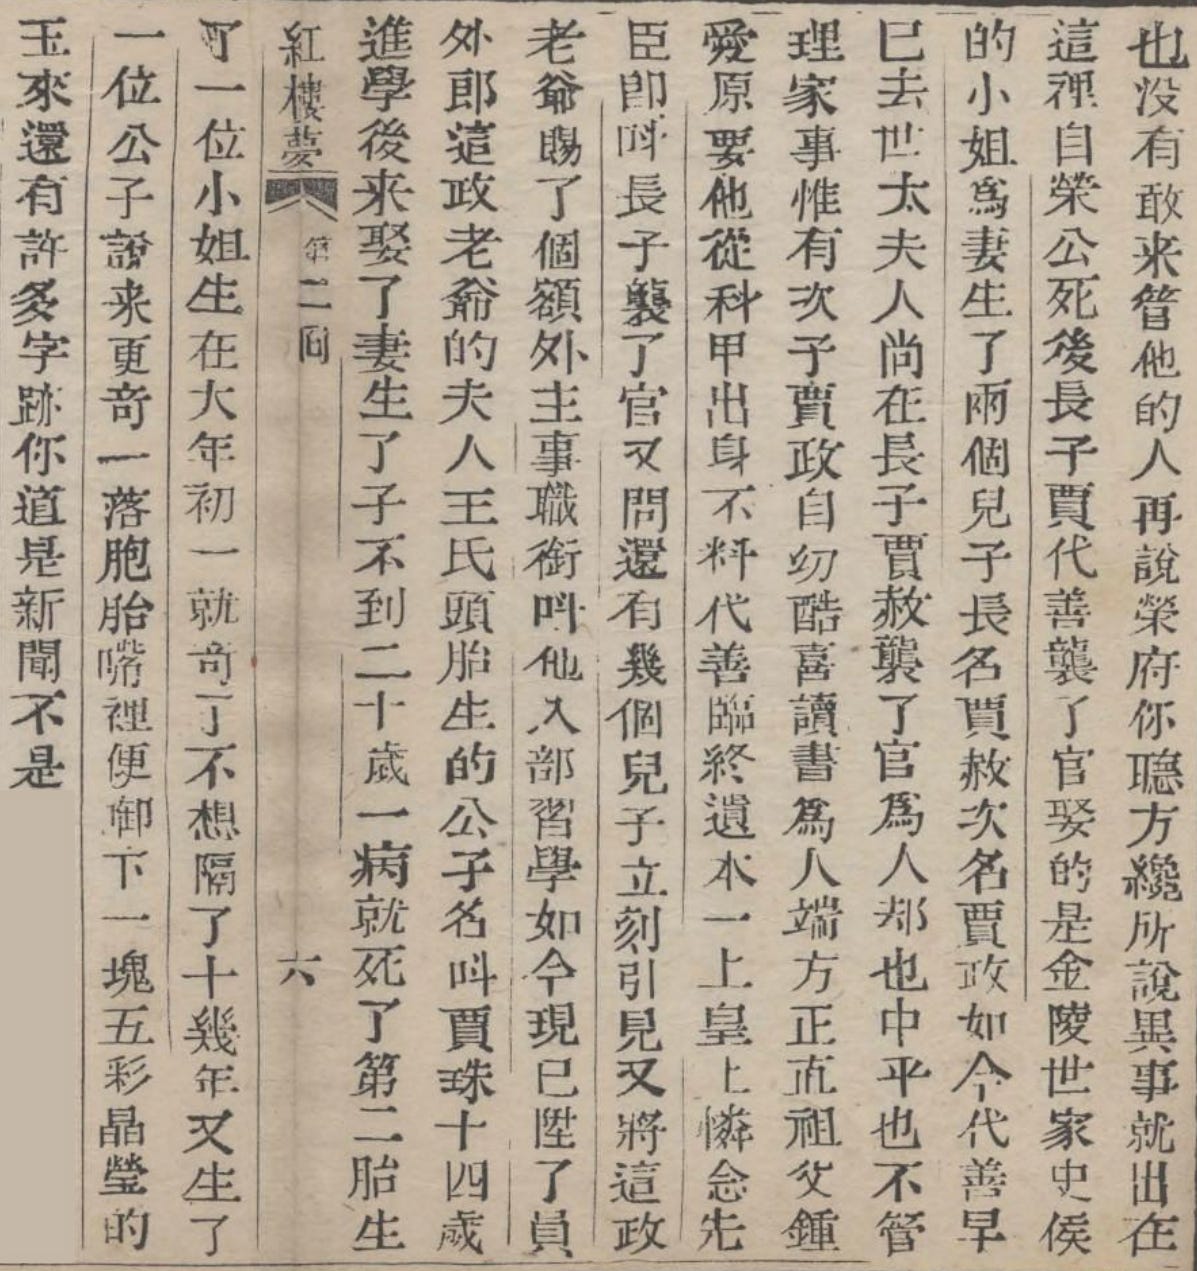 也没有敢来管他的人再說榮府你聽方纔所說異事就出在
這裡自榮公死後長子賈代善襲了官娶的是金陵世家史侯
的小姐爲妻生了兩個兒子長名賈赦次名賈政如今代善早
巳去世太夫人尚在長子賈赦襲了官爲人却也中平也不管
理家事惟有次子賈政自幼酷喜讀書爲人端方正直祖父鍾
愛原要他從科甲出身不料代善臨終遺本一上皇上憐念先
臣卽呌長子襲了官又問還有幾個兒子立刻引見又將這政
老爺賜了個額外主事職銜呌他入部習學如今現已陞了員
外郎這政老爺的夫人王氏頭胎生的公子名呌賈珠十四歲
進學後来娶了妻生了子不到二十歲一病就死了第二胎生
紅樓夢 第二囘 六
了一位小姐生在大年初一就奇了不想隔了十幾年又生了
一位公子說来更奇一落胞胎嘴裡便啣下一塊五彩晶瑩的
玉來還有許多字跡你道是新聞不是